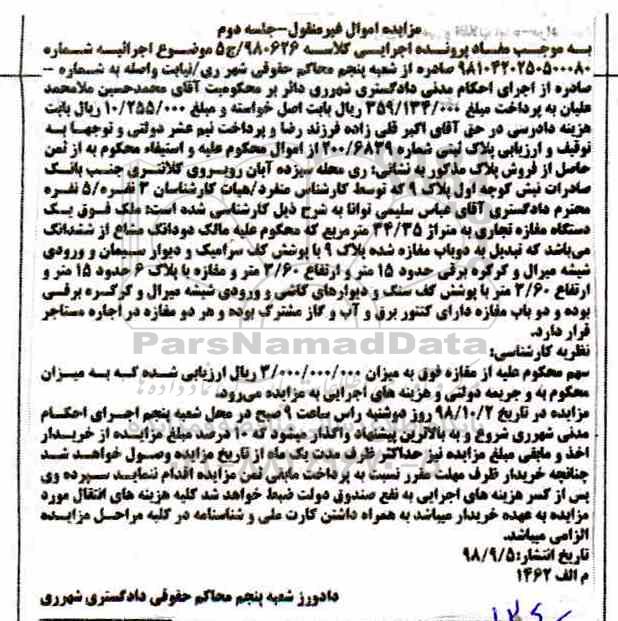 مزایده اموال غیرمنقول-جلسه دوم
به موجب مفاد پرونده اجرایی کلاسه ۹۸۰۶۲۶/ج۵ موضوع اجرائیه شماره
۹۸۱۰۴۲۰۲۵۰۵۰۰۰۸۰ صادره از شعبه پنجم محاکم حقوقی شهر ری/نیابت واصله به شماره –
صادره از اجرای احکام مدنی دادگستری شهرری دائر بر محکومیت آقای محمدحسین ملامحمد
علیان به پرداخت مبلغ ۳۵۹/۱۳۴/۰۰۰ ریال بابت اصل خواسته و مبلغ ۱۰/۲۵۵/۰۰۰ ریال بابت
هزینه دادرسی در حق آقای اکبر قلی زاده فرزند رضا و پرداخت نیم عشر دولتی و توجها به
توقیف و ارزیابی پلاک ثبتی شماره ۲۰۰/۶۸۳۹ از اموال محکوم علیه و استیفاء محکوم به از ثمن
حاصل از فروش پلاک مذکور به نشانی: ری محله سیزده آبان روبروی کلانتری جنب بانک
صادرات نبش کوچه اول پلاک ۹ که توسط کارشناس منفرد/هیات کارشناسان ۳ نفره/۵ نفره
محترم دادگستری آقای عباس سلیمی توانا به شرح ذیل کارشناسی شده است: ملک فوق یک
دستگاه مغازه تجاری به متراژ ۳۴/۳۵ مترمربع که محکوم علیه مالک دودانگ مشاع از ششدانگ
می‌باشد که تبدیل به دوباب مغازه شده پلاک ۹ با پوشش کف سرامیک و دیوار سیمان و ورودی
شیشه میرال و کرکره برقی حدود ۱۵ متر و ارتفاع ۳/۶۰ متر و مغازه با پلاک ۶ حدود ۱۵ متر و
ارتفاع ۳/۶۰ متر با پوشش کف سنگ و دیوارهای کاشی و ورودی شیشه میرال و کرکره برقی
بوده و دو باب مغازه دارای کنتور برق و آب و گاز مشترک بوده و هر دو مغازه در اجاره مستاجر
قرار دارد.
نظریه کارشناسی:
سهم محکوم علیه از مغازه فوق به میزان ۳/۰۰۰/۰۰۰/۰۰۰ ریال ارزیابی شده که به میزان
محکوم به و جریمه دولتی و هزینه های اجرایی به مزایده می‌رود.
مزایده در تاریخ ۹۸/۱۰/۲ روز دوشنبه راس ساعت ۹ صبح در محل شعبه پنجم اجرای احکام
مدنی شهرری شروع و به بالاترین پیشنهاد واگذار میشود که ۱۰ درصد مبلغ مزایده از خریدار
اخذ و مابقی مبلغ مزایده نیز حداکثر ظرف مدت یک ماه از تاریخ مزایده وصول خواهد شد
چنانچه خریدار ظرف مهلت مقرر نسبت به پرداخت مابقی ثمن مزایده اقدام ننماید سپرده وی
پس از کسر هزینه های اجرایی به نفع صندوق دولت ضبط خواهد شد کلیه هزینه های انتقال مورد
مزایده به عهده خریدار میباشد به همراه داشتن کارت ملی و شناسنامه در کلیه مراحل مزایده
الزامی میباشد.
تاریخ انتشار:۹۸/۹/۵
م الف ۱۴۶۲
دادورز شعبه پنجم محاکم حقوقی دادگستری شهرری
ParsNamadData